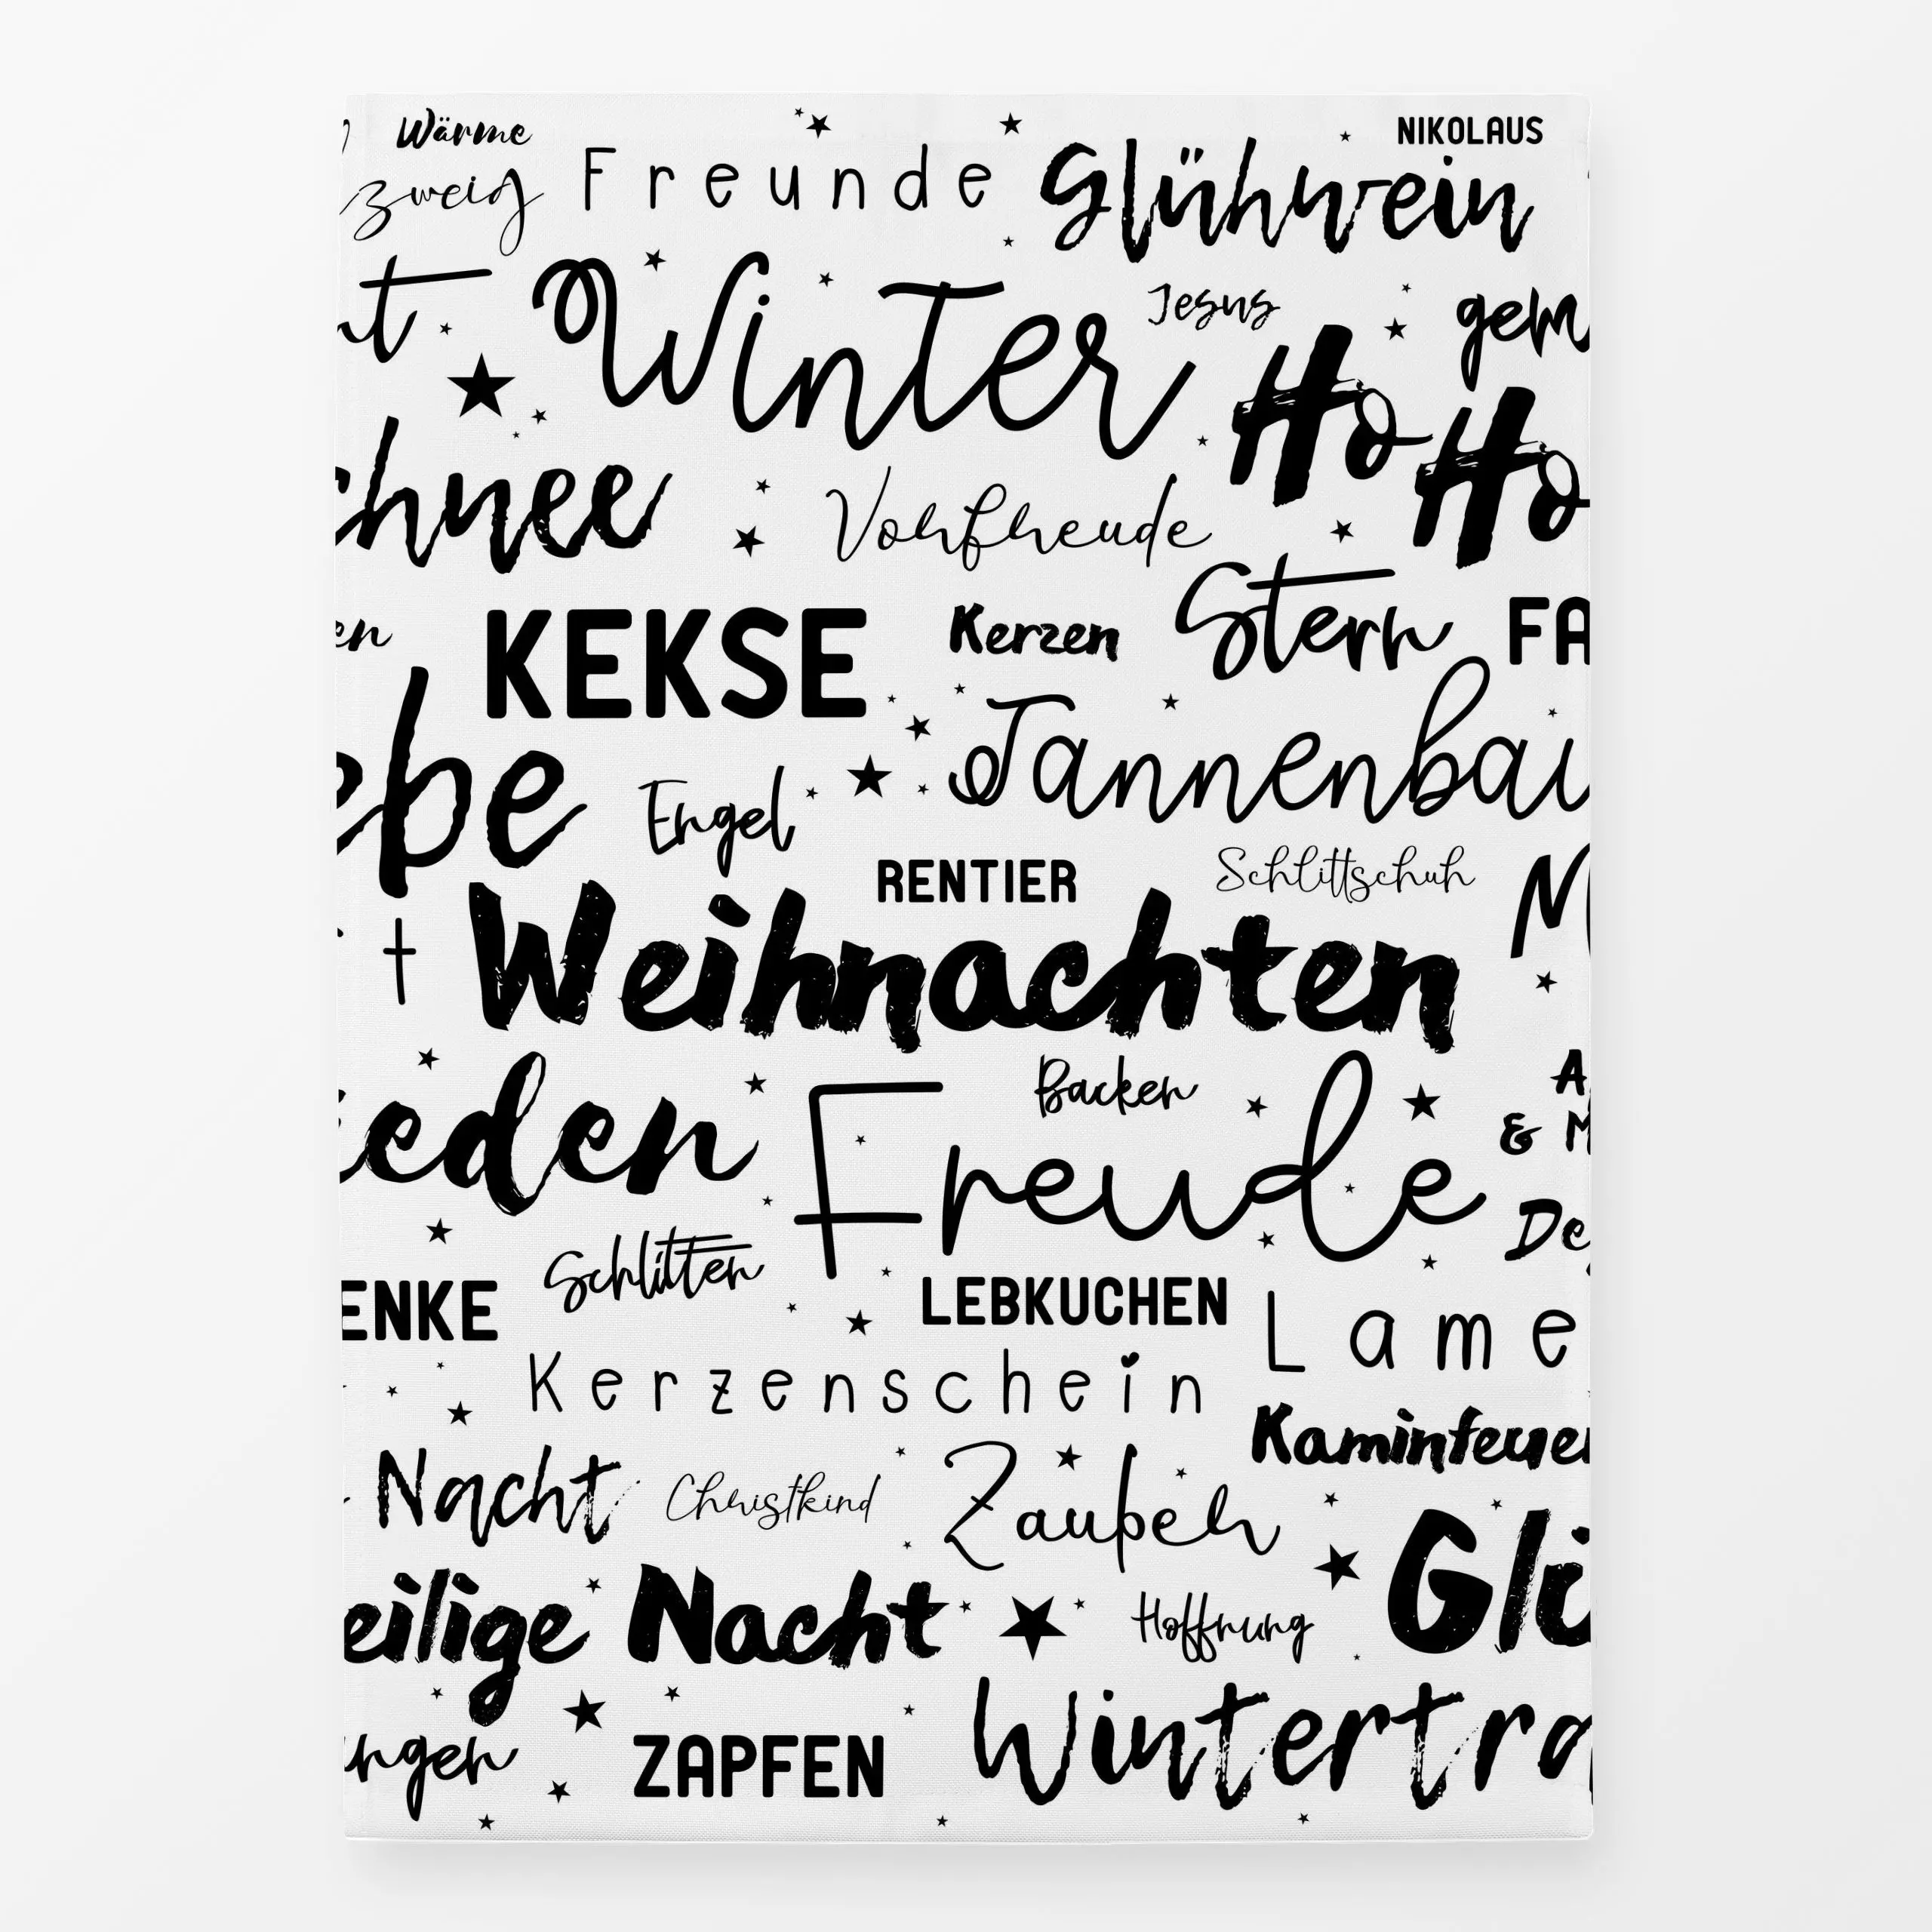 Wärme NIKOLAUS
zweig Freunde Glühwein
Winter Jesus gem
Ho Ho
chnee Vorfreude
en KEKSE Kerzen Stern FA
ebe Engel Tannenbau
RENTIER Schlittschuh M
t Weihnachten
ieden Freude Backen A
& M
De
Schlitten
ENKE LEBKUCHEN Lame
Kerzenschein
Kaminfeuer
Nacht Christkind Zauber
eilige Nacht Hoffnung Glü
ungen ZAPFEN Wintertra